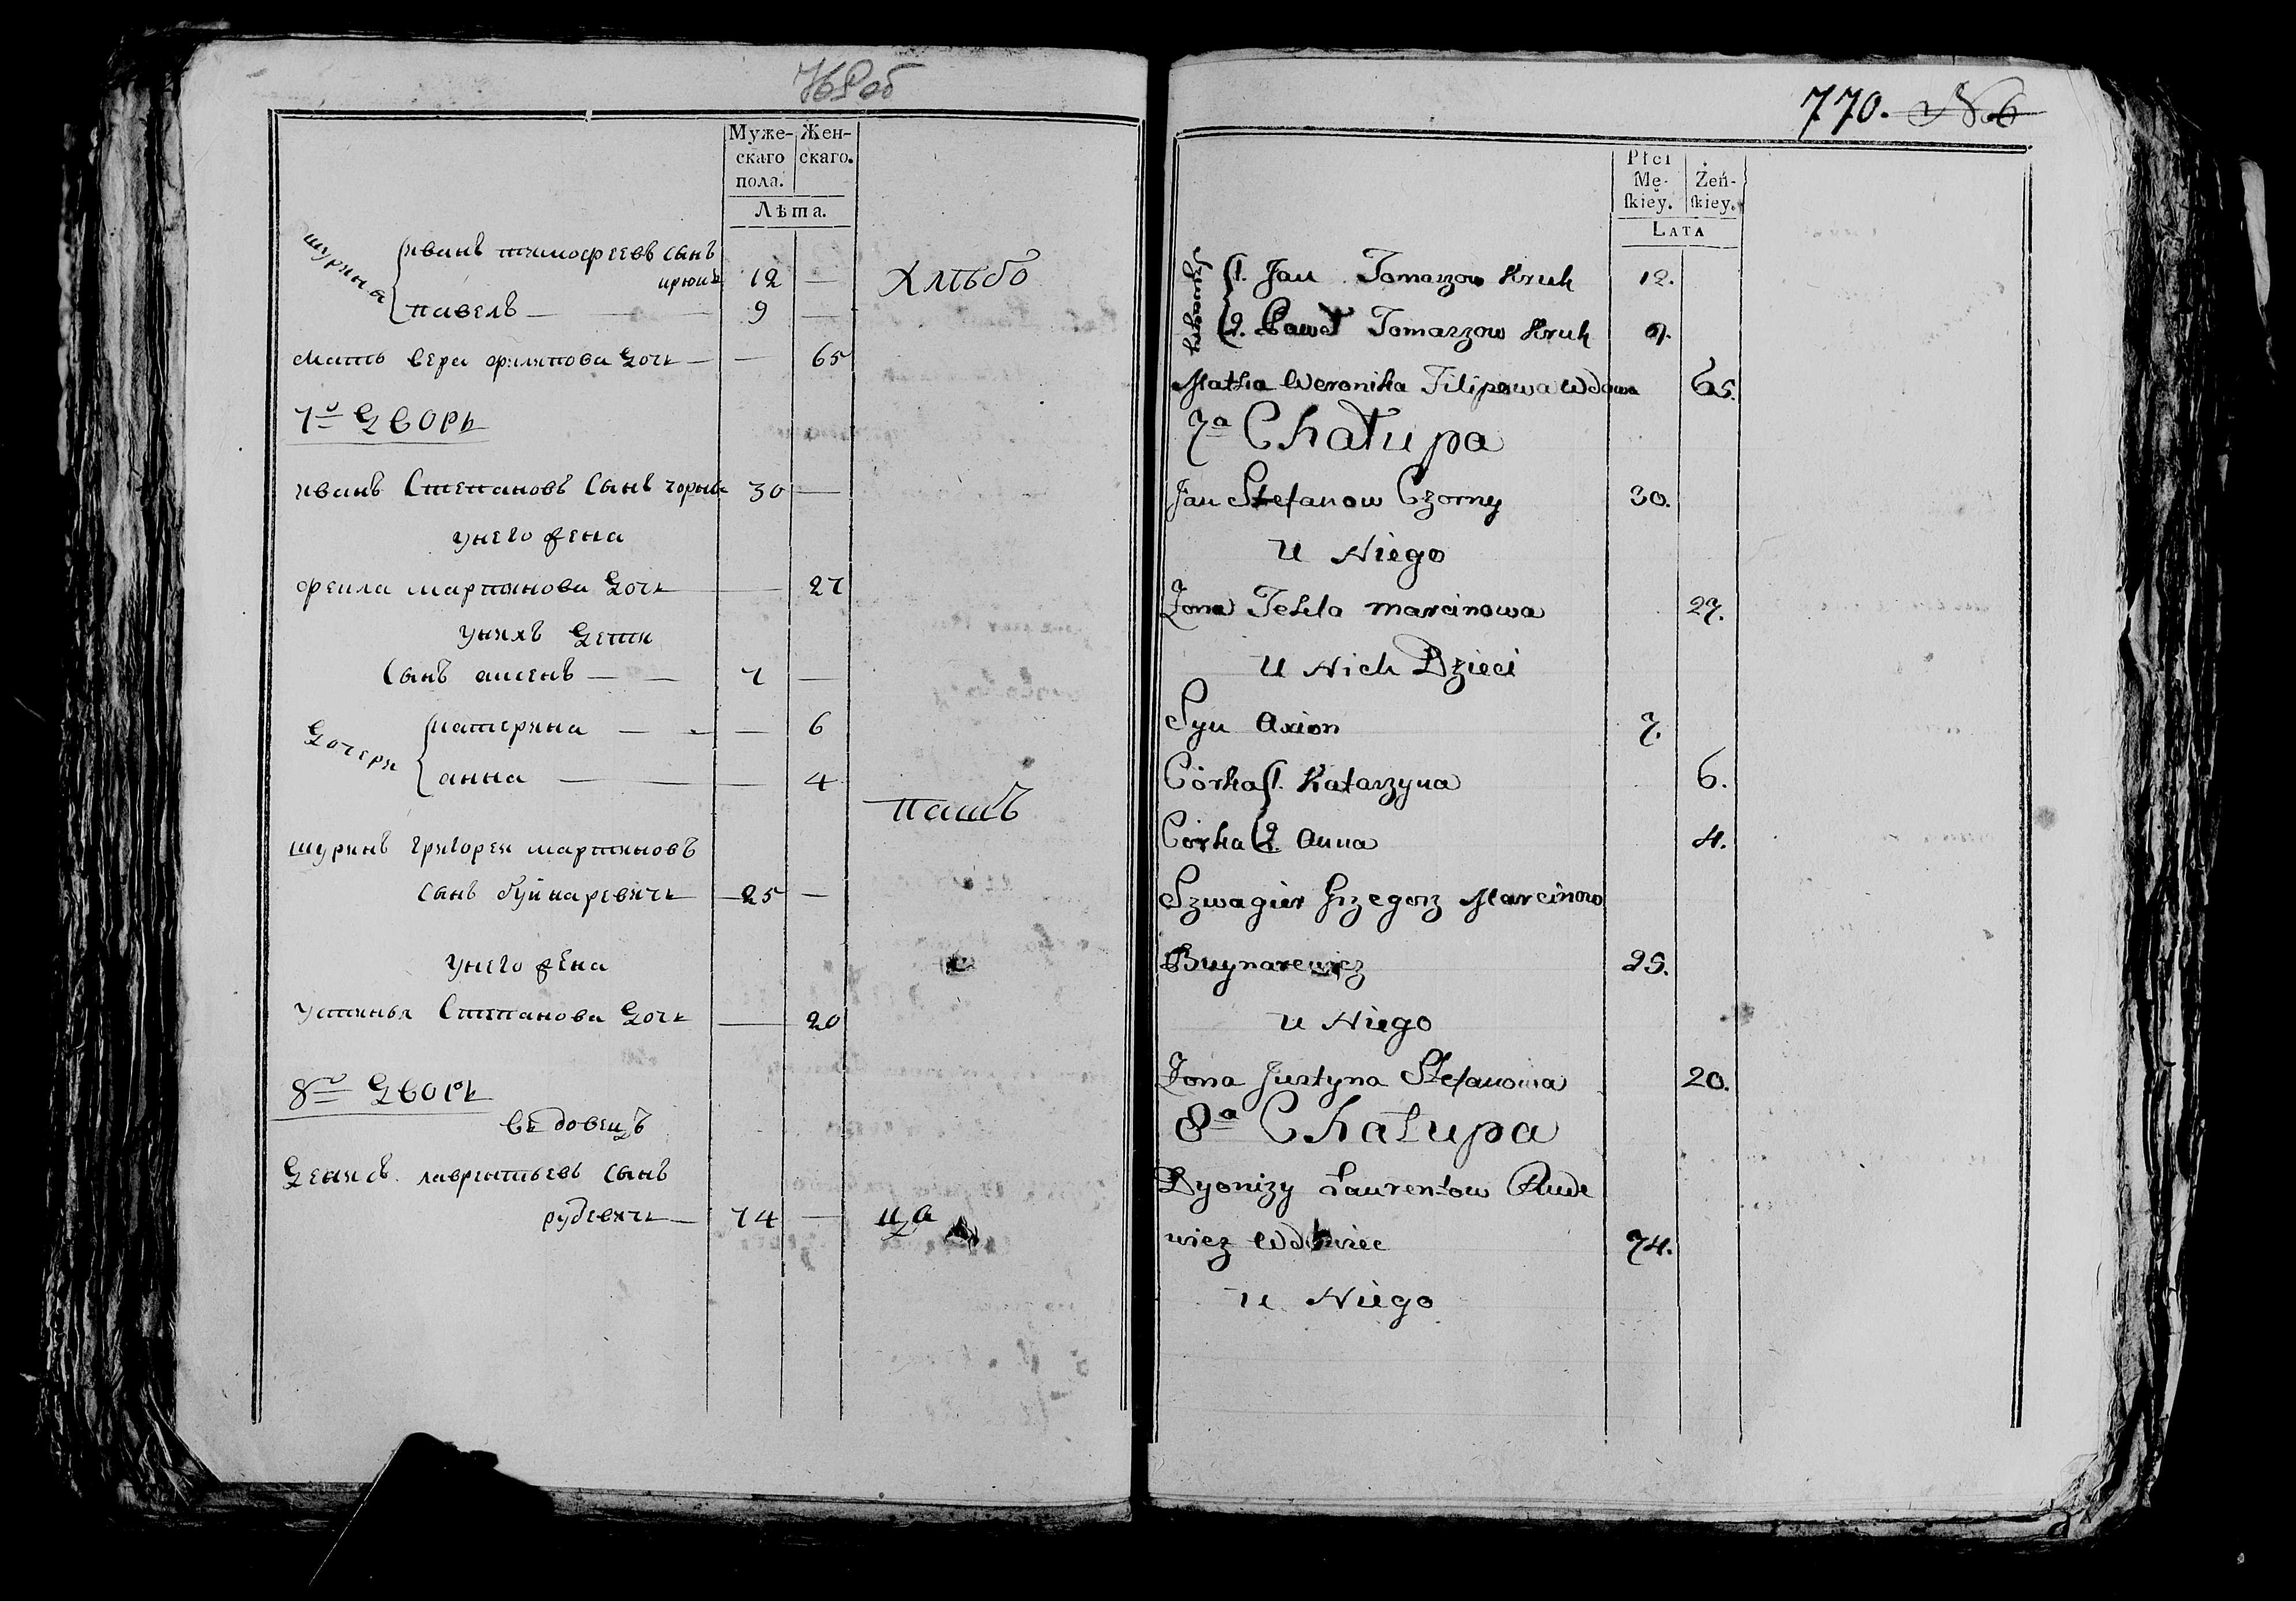 769об
Муже-
скаго
пола.
Жен-
скаго.
Лѣта.
шурина
иванъ тимофеевъ сынъ
крюкъ 12 — хлѣбо
павелъ — — 9 —
мать вера филипова дочь — — 65
7о дворъ
иванъ Степановъ сынъ чорныи 30 —
унего жена
фекла мартинова дочь — 27
унихъ дети
сынъ аксенъ — — 7 —
дочери
катерина — — — 6
анна — — 4
пашъ
шуринъ григореи мартиновъ
сынъ буйнаревичь — 25 —
унего жена
устинья Степанова дочь — 20
8о дворъ
въдовецъ
денисъ лаврентьевъ сынъ
рудевичь — 74 — ца
770. No 6
Płci
Mę-
ſkiey.
Żeń-
ſkiey.
LATA
1. Jan Tomaszow Kruk 12.
2. Paweł Tomaszow Kruk 9.
Matka Weronika Filipowa Wdowa 65.
7a Chałupa
Jan Stefanow Czorny 30.
u Niego
Żona Tekla marcinowa 27.
u Nich Dzieci
Syn Axion 7.
Córka 1. Katarzyna 6.
Córka 2. Anna 4.
Szwagier Grzegorz Marcinow
Buynarewicz 25.
u Niego
Żona Justyna Stefanowa 20.
8a Chałupa
Dyonizy Laurentow Rude
wicz Wdowiec 74.
u Niego